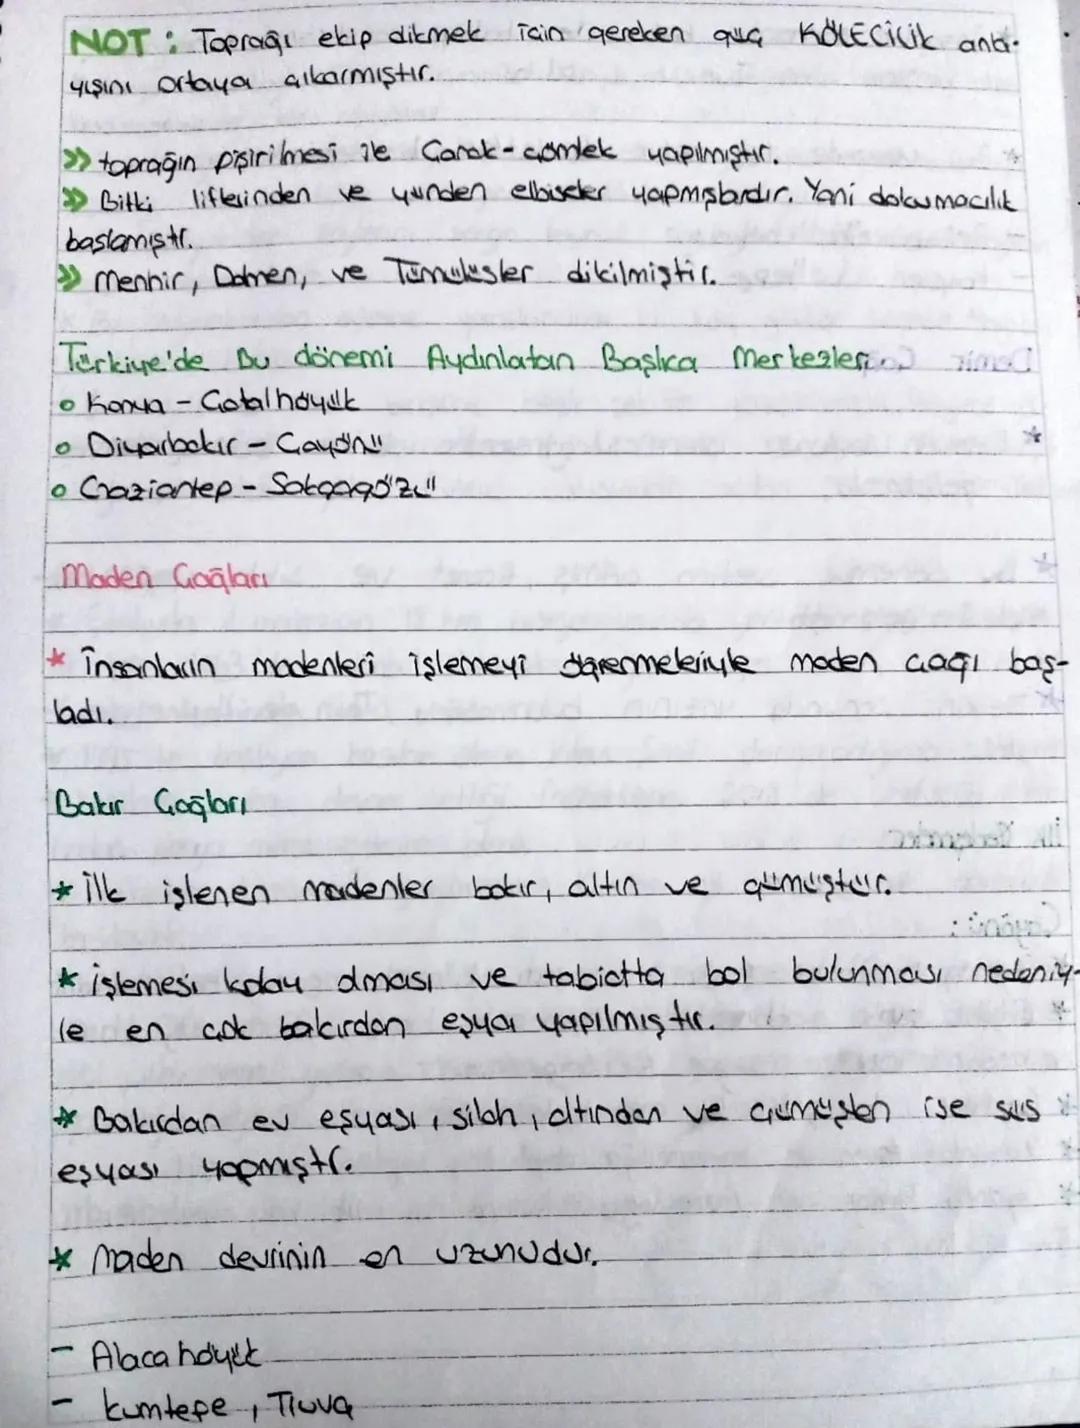 NOT : Toprağı ekip dikmek için gereken güç KÖLECİLİK anla-
yışını ortaya çıkarmıştır.
» toprağın pişirilmesi ile Çanak-çömlek yapılmıştır.
» Bitki liflerinden ve yünden elbiseler yapmışlardır. Yani dokumacılık
başlamıştır.
» Menhir, Dolmen, ve Tümülüsler dikilmiştir.
Türkiye'de Bu dönemi Aydınlatan Başlıca Merkezler
o Konya - Çatalhöyük
o Diyarbakır - Çayönü
o Gaziantep - Sakçagözü
Maden Çağları
* İnsanların madenleri işlemeyi öğrenmeleriyle maden çağı baş-
ladı.
Bakır Çağları
* İlk işlenen madenler bakır, altın ve gümüştür.
* işlemesi kolay olması ve tabiatta bol bulunması nedeniy-
le en çok bakırdan eşya yapılmıştır.
* Bakırdan ev eşyası, silah, altından ve gümüşten ise süs
eşyası yapmıştır.
* Maden devrinin en uzunudur.
- Alacahöyük
- kumtepe, Truva